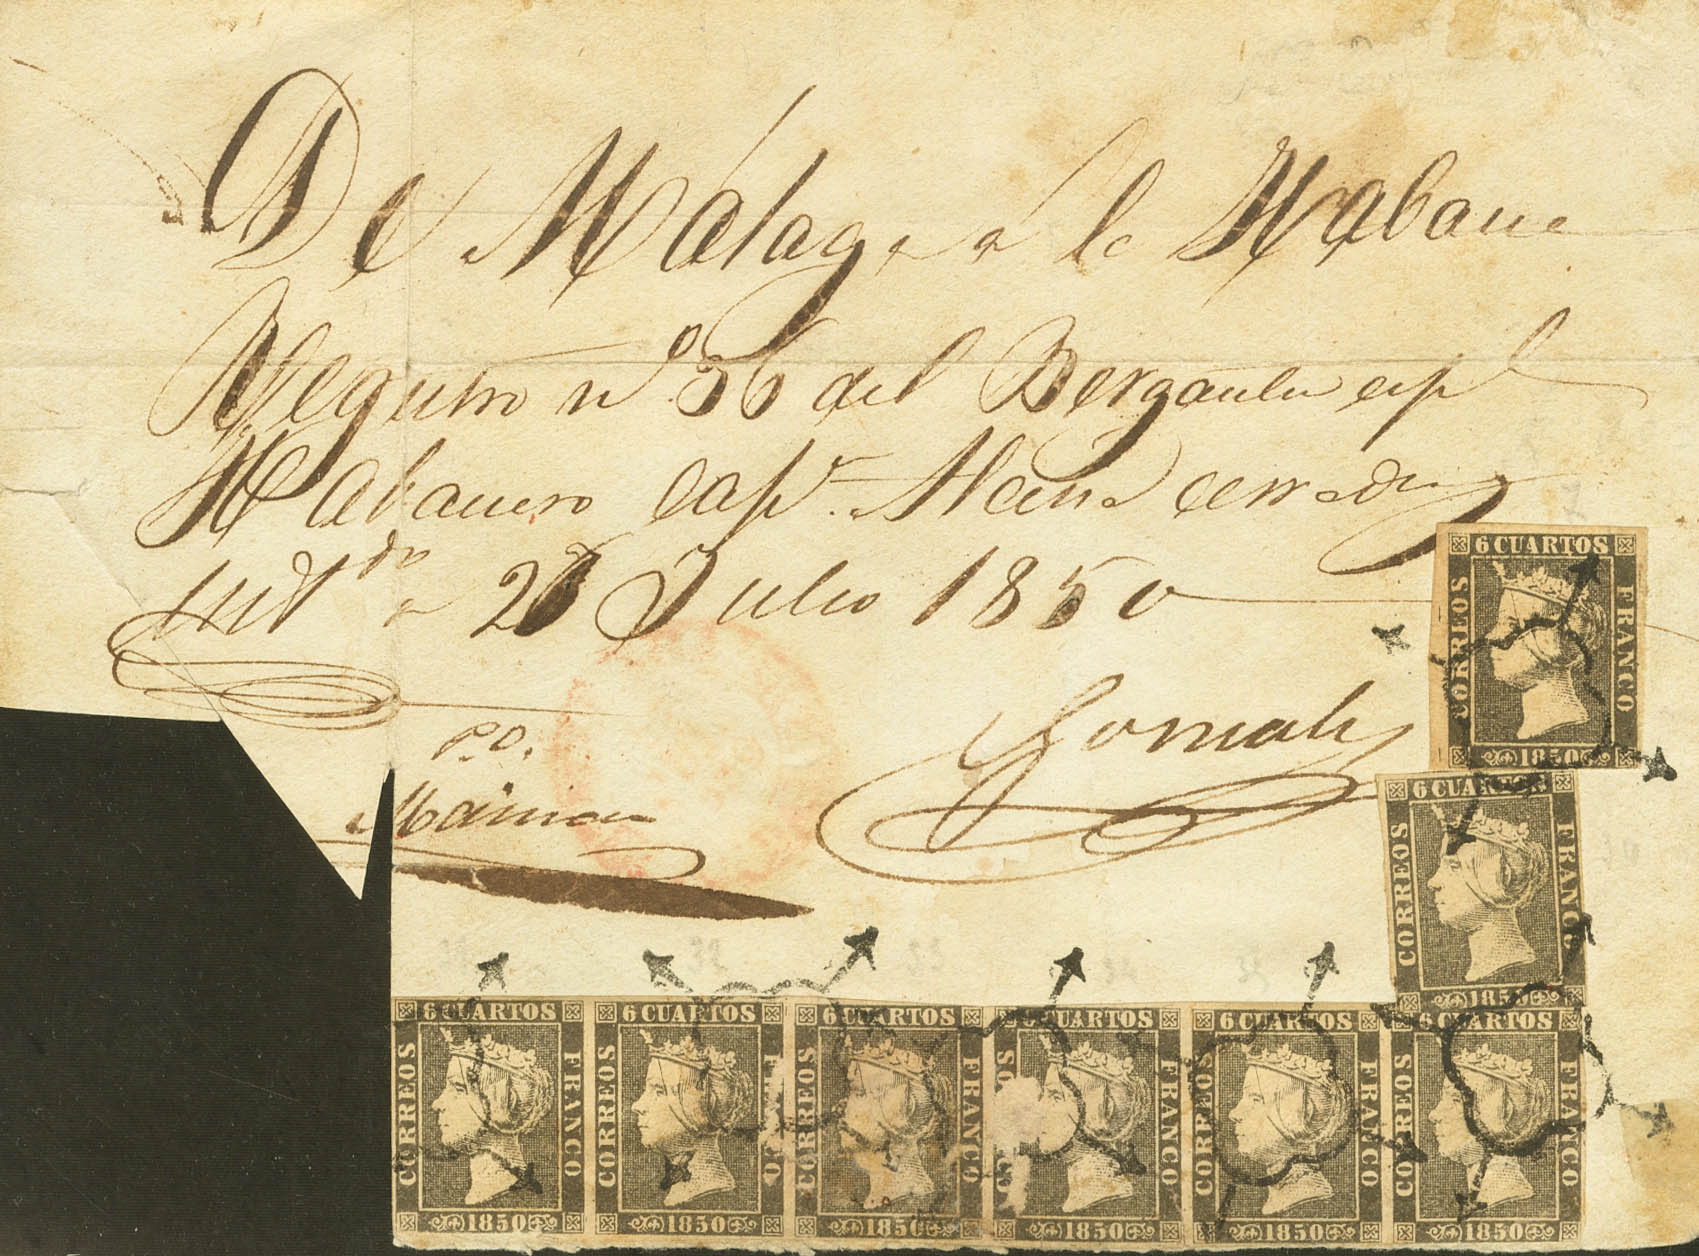 De Malaga a la Habana
Seguro nº 36 del Bergantin espl
Habanero capn. Alsina cerrado y
en 26 Julio 1850
P.O.
Gonzalez
6 CUARTOS
CORREOS
FRANCO
1850
6 CUARTOS
CORREOS
FRANCO
1850
6 CUARTOS
CORREOS
FRANCO
1850
6 CUARTOS
CORREOS
FRANCO
1850
6 CUARTOS
CORREOS
FRANCO
1850
6 CUARTOS
CORREOS
FRANCO
1850
6 CUARTOS
CORREOS
FRANCO
1850
6 CUARTOS
CORREOS
FRANCO
1850